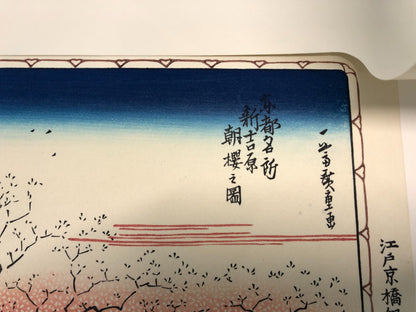 東都名所
新吉原
朝櫻之圖
一立斎廣重画
江戸京橋